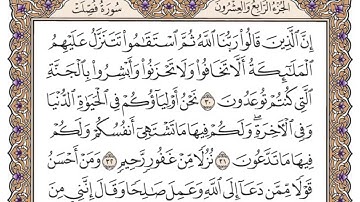 الجزء الرابع والعشرون سورة فصلت
إِنَّ ٱلَّذِينَ قَالُوا۟ رَبُّنَا ٱللَّهُ ثُمَّ ٱسْتَقَٰمُوا۟ تَتَنَزَّلُ عَلَيْهِمُ
ٱلْمَلَٰٓئِكَةُ أَلَّا تَخَافُوا۟ وَلَا تَحْزَنُوا۟ وَأَبْشِرُوا۟ بِٱلْجَنَّةِ
ٱلَّتِى كُنتُمْ تُوعَدُونَ ٣٠ نَحْنُ أَوْلِيَآؤُكُمْ فِى ٱلْحَيَوٰةِ ٱلدُّنْيَا
وَفِى ٱلْءَاخِرَةِ ۖ وَلَكُمْ فِيهَا مَا تَشْتَهِىٓ أَنفُسُكُمْ وَلَكُمْ
فِيهَا مَا تَدَّعُونَ ٣١ نُزُلًا مِّنْ غَفُورٍ رَّحِيمٍ ٣٢ وَمَنْ أَحْسَنُ
قَوْلًا مِّمَّن دَعَآ إِلَى ٱللَّهِ وَعَمِلَ صَٰلِحًا وَقَالَ إِنَّنِى مِنَ